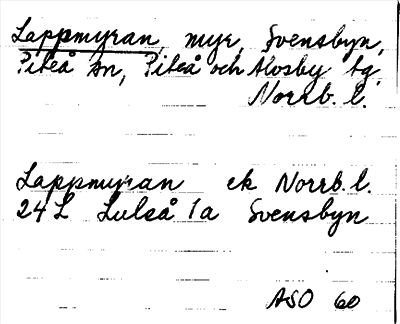 Lappmyran, myr, Svensbyn,
Piteå sn, Piteå och Älvsby tg
Norrb. l.
Lappmyran ek Norrb. l.
24L Luleå 1a Svensbyn
ASO 60